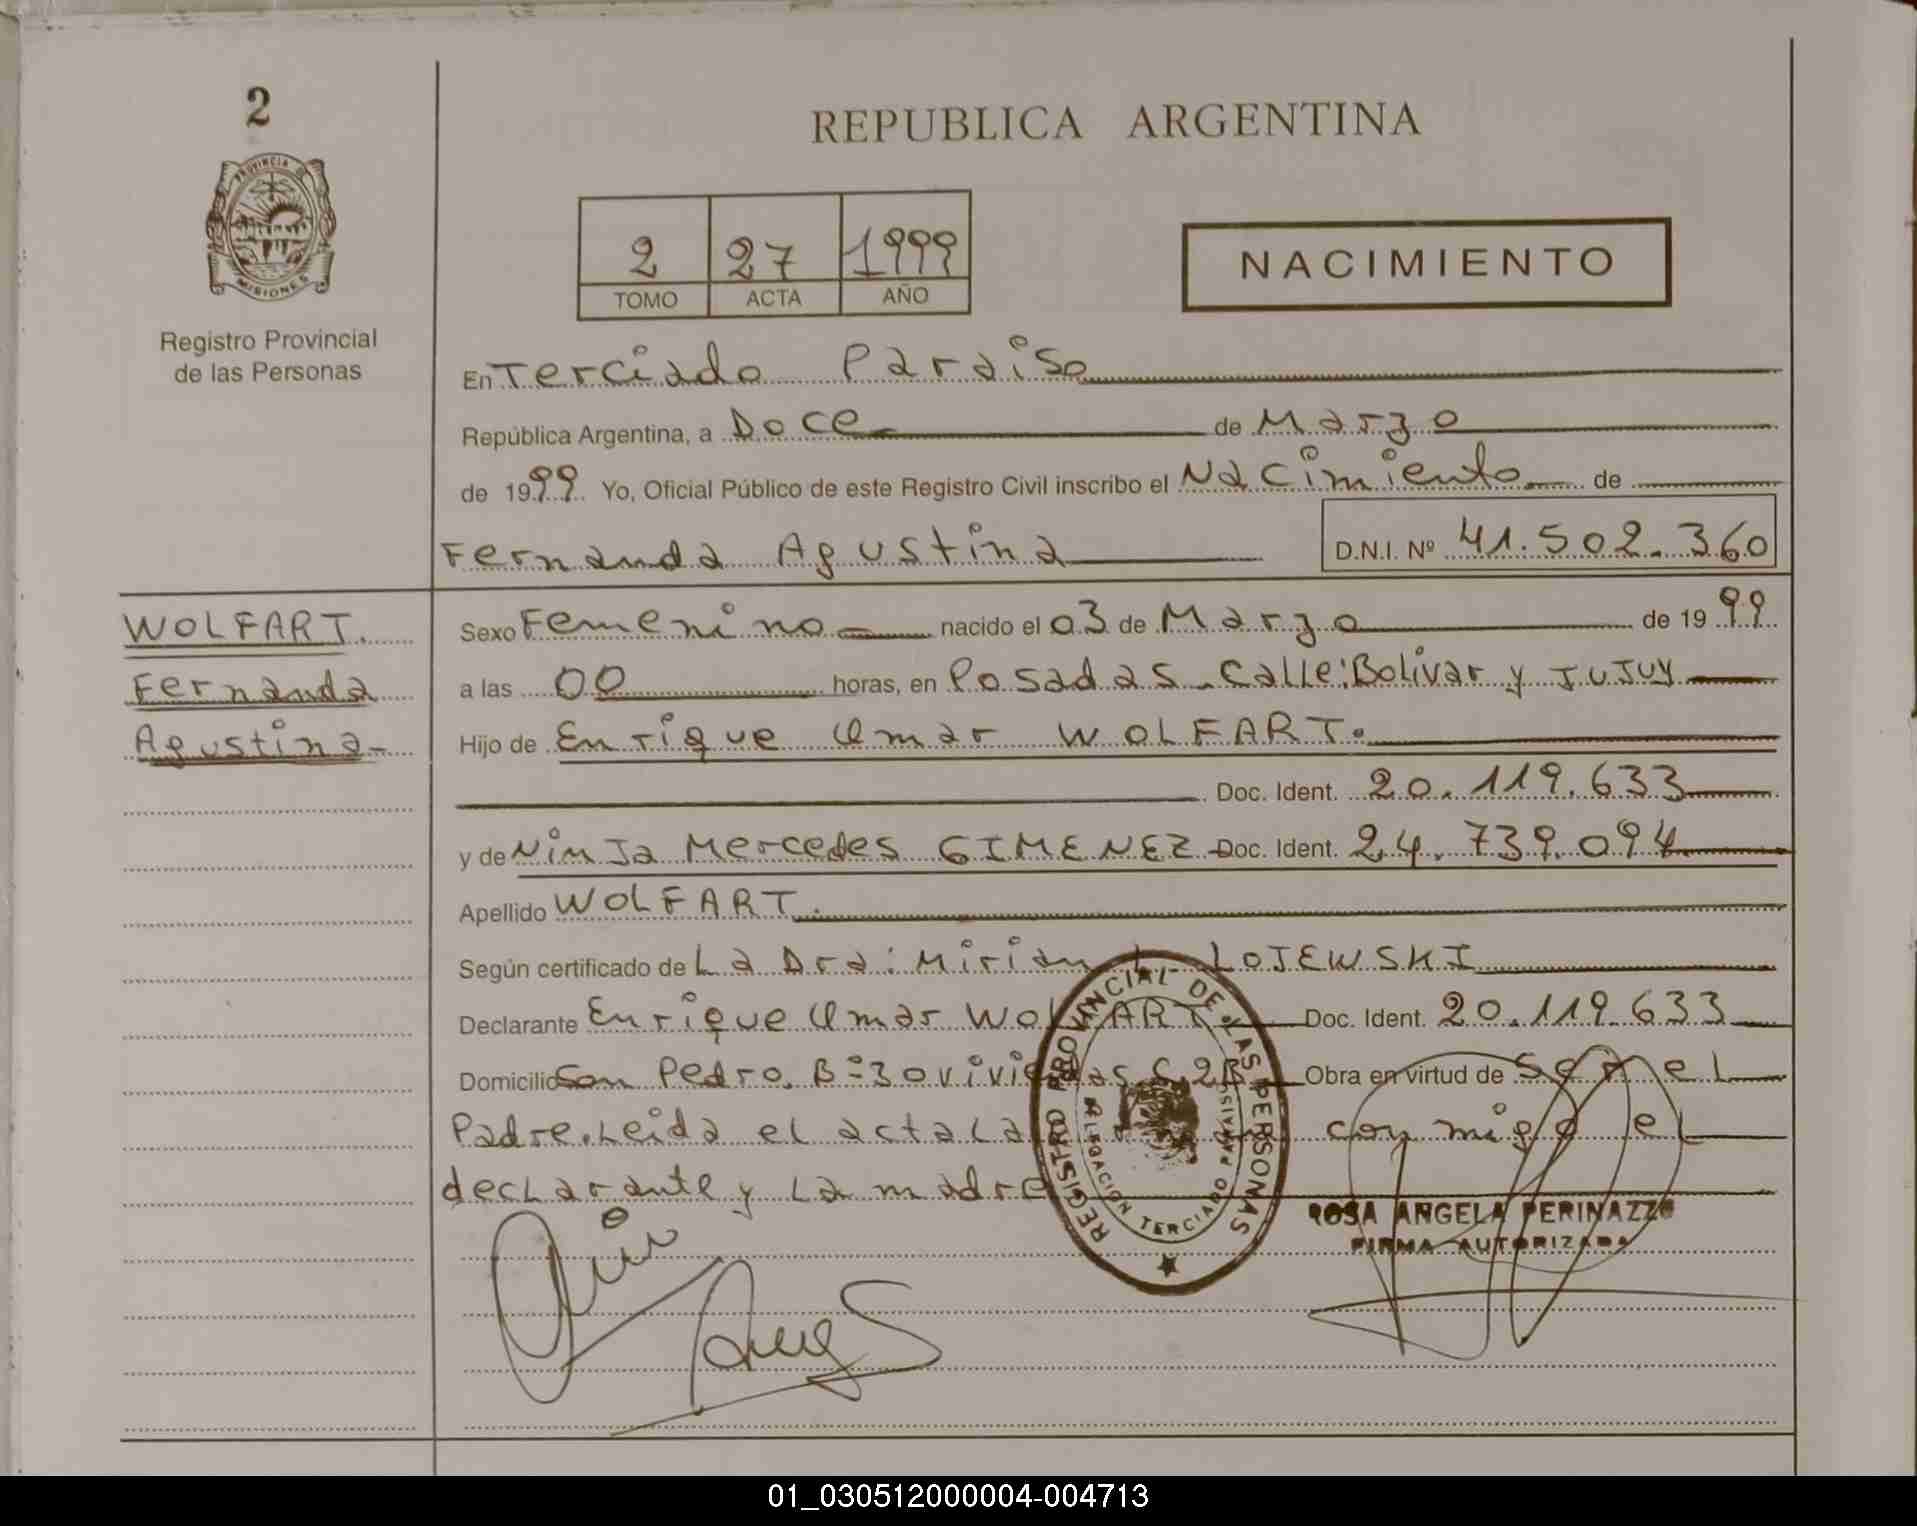 2
PROVINCIA DE
MISIONES
Registro Provincial
de las Personas
REPUBLICA ARGENTINA
2 27 1999
TOMO ACTA AÑO
NACIMIENTO
En Terciado Paraiso
República Argentina, a Doce de Marzo
de 1999 Yo, Oficial Público de este Registro Civil inscribo el Nacimiento de
Fernanda Agustina D.N.I. Nº 41.502.360
WOLFART.
Fernanda
Agustina-
Sexo Femenino nacido el 03 de Marzo de 1999
a las 00 horas, en Posadas. Calle: Bolivar y JUJUY
Hijo de Enrique Omar WOLFART.
Doc. Ident. 20.119.633
y de NinJa Mercedes GIMENEZ Doc. Ident. 24.739.094
Apellido WOLFART.
Según certificado de La Dra: Mirian LOJEWSKI
Declarante Enrique Omar WOLFART Doc. Ident. 20.119.633
Domicilio San Pedro. Bº 30 viviendas C.2B Obra en virtud de Ser el
Padre. Leida el acta La conmigo el
declarante y La madre
REGISTRO PROVINCIAL DE LAS PERSONAS
DELEGACION TERCIADO PARAISO
ROSA ANGELA PERINAZZO
FIRMA AUTORIZADA
01_030512000004-004713